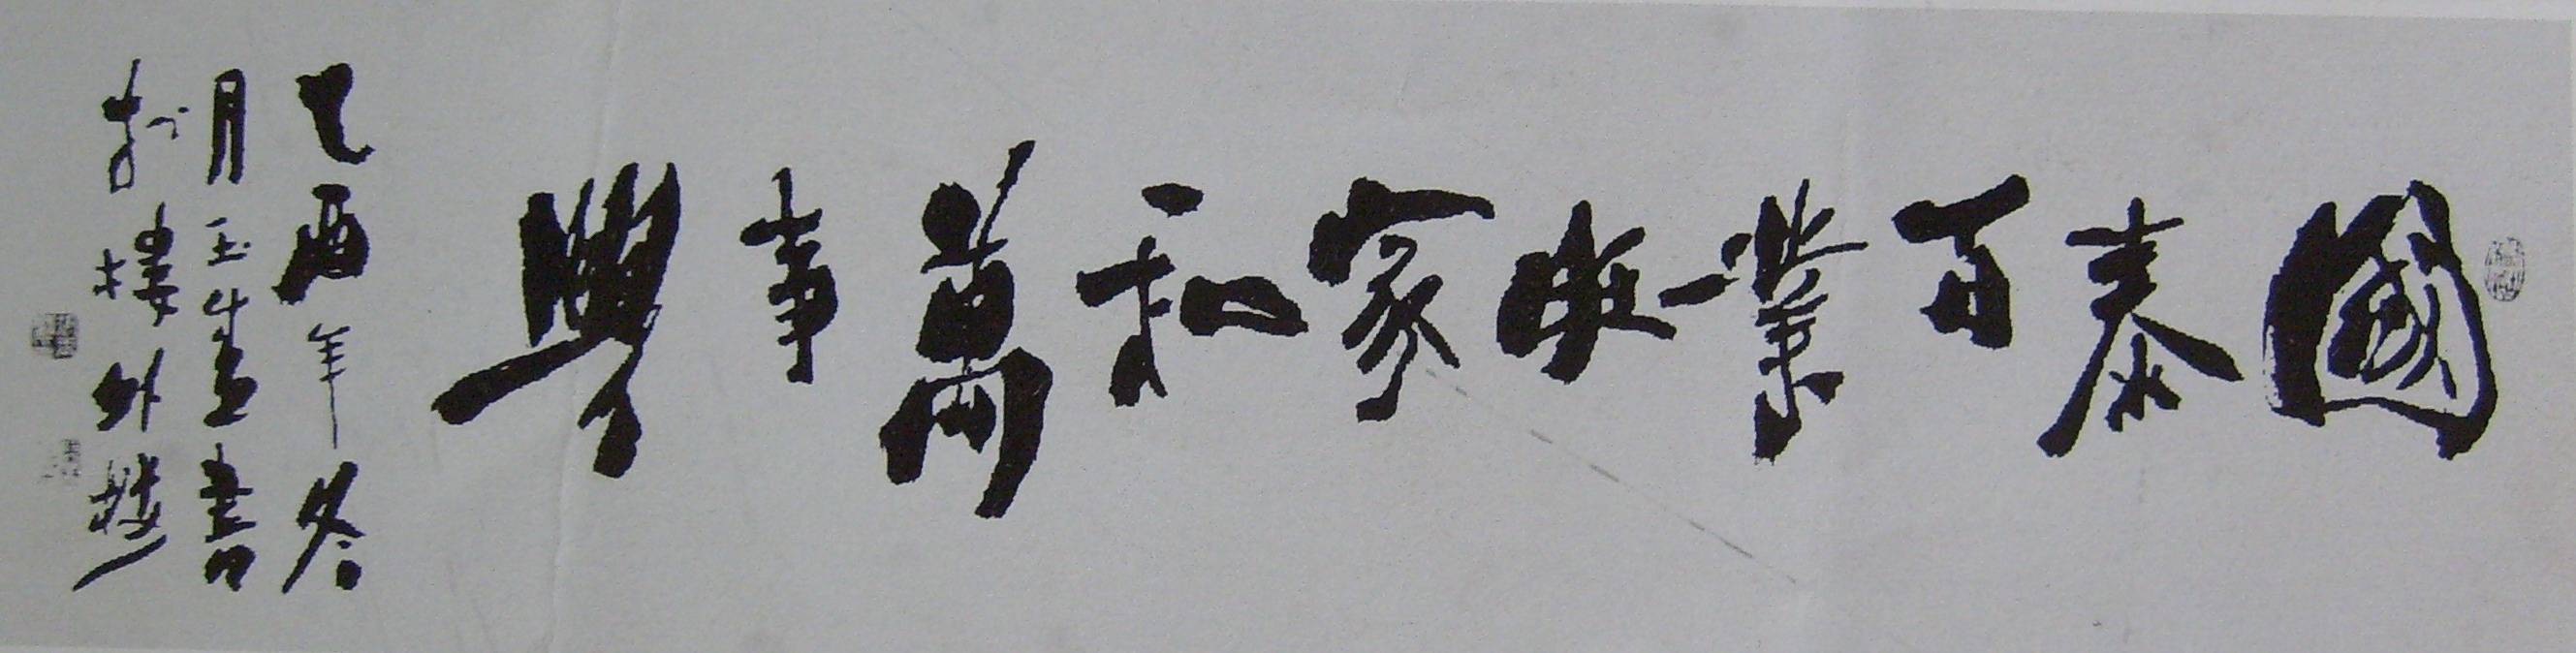 國泰百業旺家和萬事興
乙酉年冬
月玉生畫書
於樓外樓